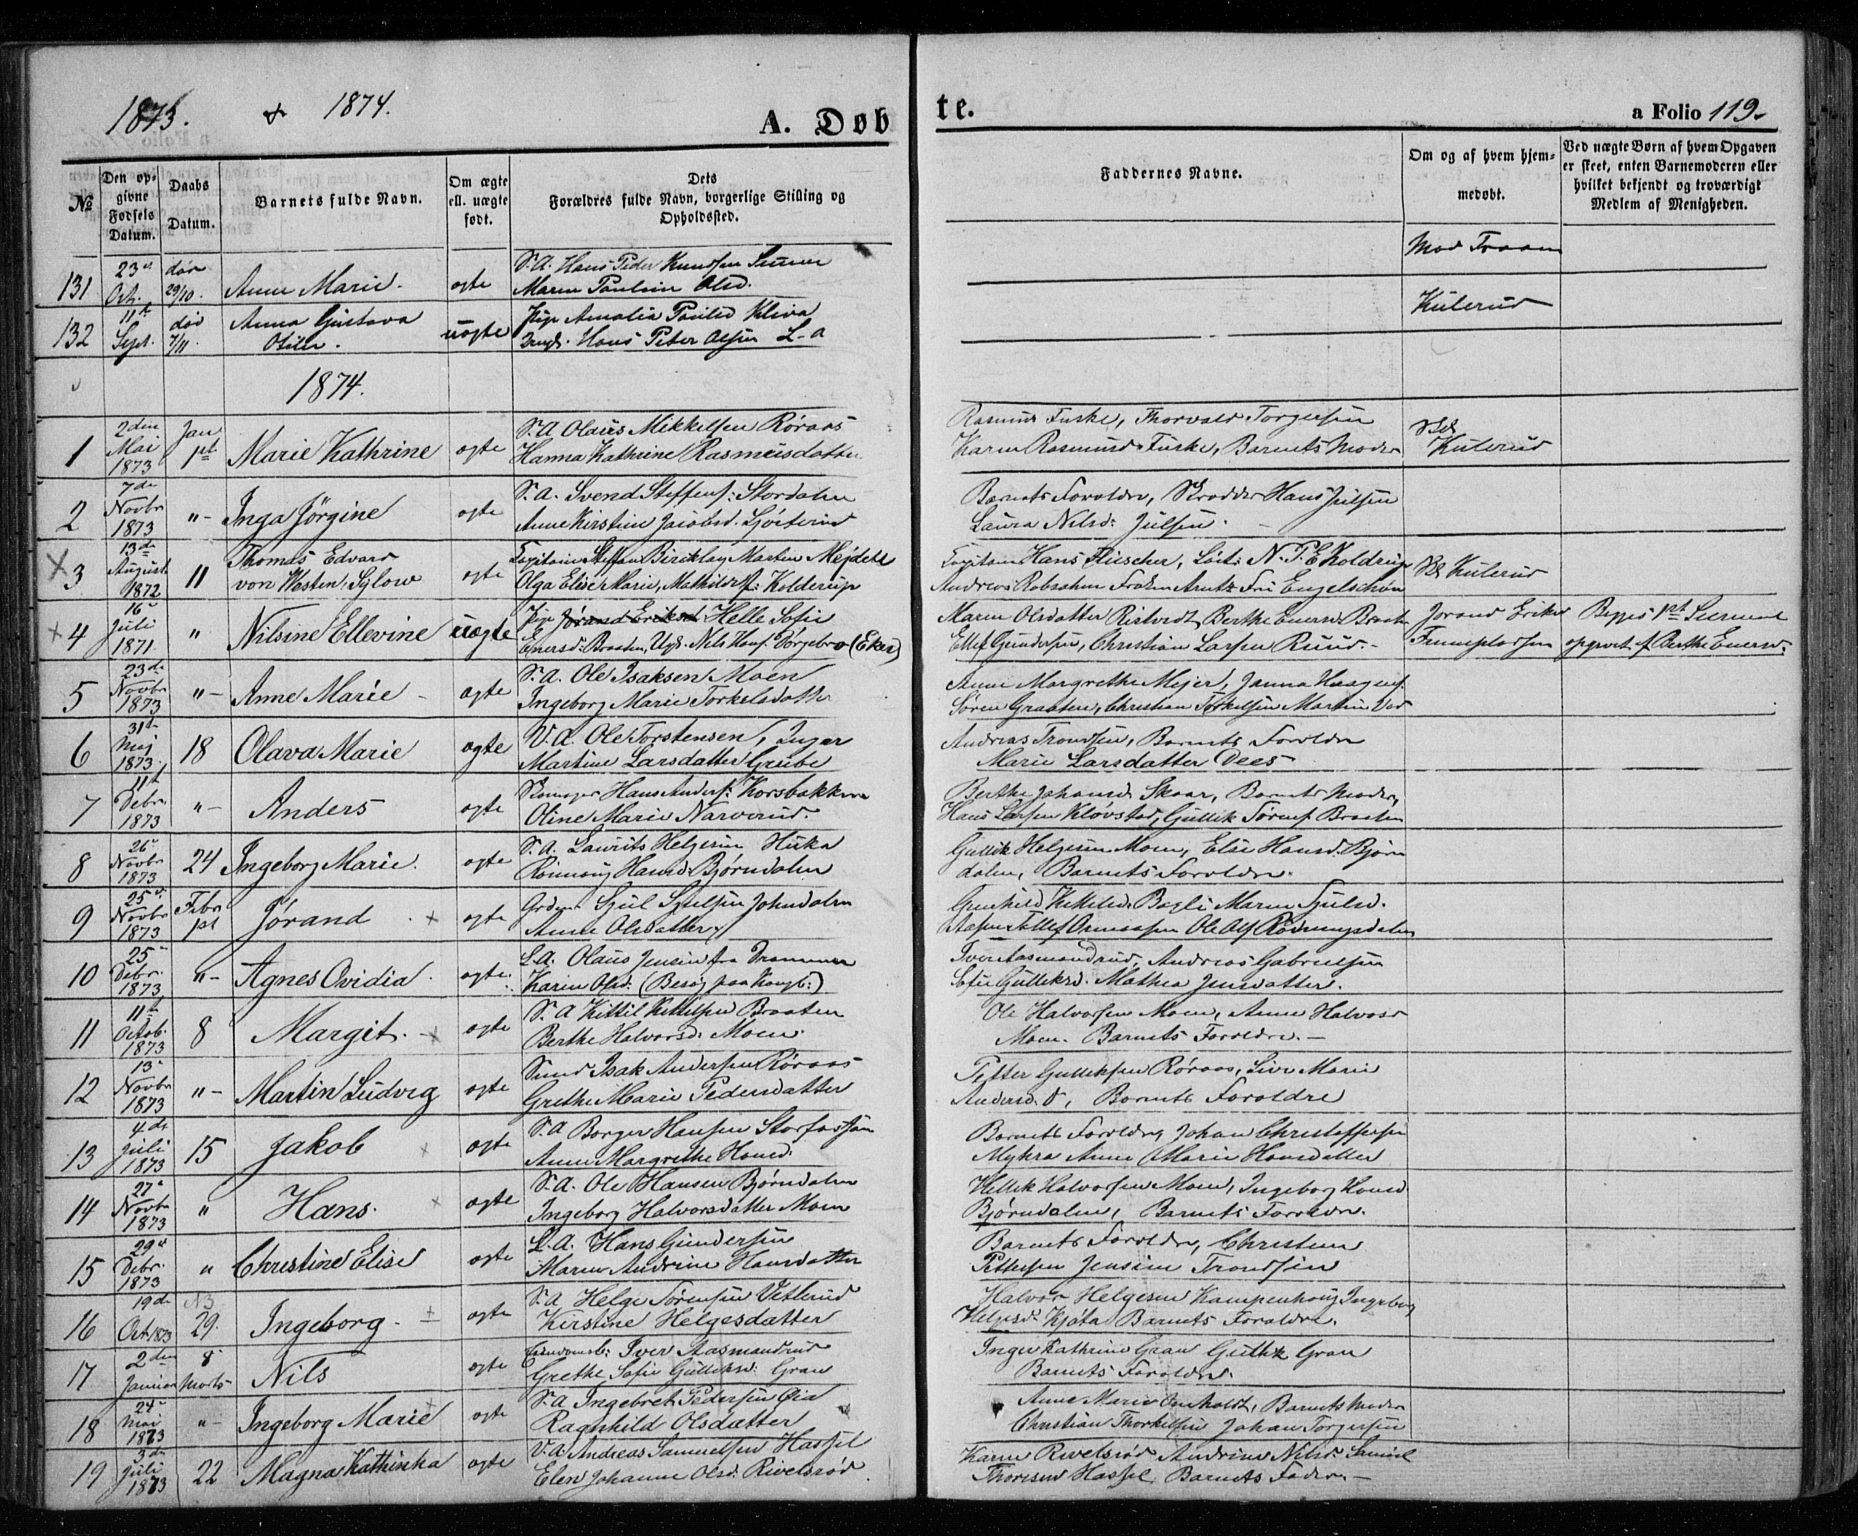 1873. & 1874.
A. Døb
te.
a Folio 119.
№
Den op-
givne
Fødsels
Datum.
Daabs
Datum.
Barnets fulde Navn.
Om ægte
ell. uægte
født.
Dets
Forældres fulde Navn, borgerlige Stilling og
Opholdssted.
Faddernes Navne.
Om og af hvem hjem-
medøbt.
Ved uægte Børn af hvem Opgaven
er skeet, enten Barnemoderen eller
hvilket bekjendt og troværdigt
Medlem af Menigheden.
131 23 Oct. død 29/10. Anne Marie. ægte S.A. Hans Peder Knudsen
Maren Paulin Olsd.
Mad Fraam
132 11t Sept. død 7/11. Anna Gustava uægte Pige Amalia Kliva
Hans Peter Olsen L.A
Kulerud
1874.
1 2den Mai 1873 Jan 1st Marie Kathrine ægte S.A Olaus Mikkelsen Røraas
Hanna Kathrine Rasmusdatter
Rasmus Fuske, Thorvald Torgersen
Karen Rasmusd Fuske, Barnets Moder
Kulerud
2 7de Novbr 1873 "- Inga Jørgine ægte S.A. Svend Steffens: Stordalen
Anne Kirstine Jacobsd.
Barnets Forældre, Skrædder Hans Julsen
Laura Nilsd: Julsen.
3 13de August 1872 11 Thomas Edvard
von Westen: Sylow ægte Capitain Steffen Bircklay Marten Mejdell
Olga Elise Marie, Mathilde f: Kolderup
Capitain Hans Fleischer, N.P.E Koldrup
Andreas Robsahm Frøken Arntz Fru Engelschøn
Kulerud
4 16 Juli 1871 " Nilsine Ellevine uægte Pige Jørand Eriksd Helle Sofie
Enersd: Braaten, Nils Hans. (Eker)
Maren Olsdatter Berthe Enersd Braaten
Ellef Gundersen, Christian Larsen Ruud.-
Jorand Eriksd
opgivet af Berthe Enersd.
5 23de Novbr 1873 "- Anne Marie - ægte S.A. Ole Isaksen Moen
Ingeborg Marie Torkelsdatter
Anne Margrethe Mejer, Janna Haagens.
Søren Graaten, Christian Torkelsen Martin
6 31te Mej 1873 18 Olava Marie ægte V.A. Ole Torstensen, Inger
Martine Larsdatter Grube
Andreas Trondsen, Barnets Forældre
Marie Larsdatter Dees
7 11t Debr 1873 "- Anders ægte Hans Anders: Korsbakken
Oline Marie Narverud.
Berthe Johansd: Skaar, Barnets Moder,
Hans Larsen Kløvstad, Gullik Sørens. Braaten
8 26 Novbr 1873 24 Ingeborg Marie. ægte S.A. Laurits Helgesen Huka
Rønnaug Hansd: Bjørndalen
Gullik Helgesen Moen, Else Hansd. Bjørn
dalen, Barnets Forældre.
9 25 Novbr 1873 Febr 1st Jørand ægte Gdr. Sjul Sjulsen Johndalen
Anne Olsdatter
Gunhild Kittelsd. Bagli Maren Sjulsd.
Aasen Tollef Ole Ols Rødningsdalen
10 25 Debr. 1873 "- Agnes Ovidia. ægte. L.A. Olaus Jensen fra Drammen
Karen Olsd: (Besøg paa Kongb:)
Iver Aasmandrud, Andreas Gabrielsen
Sofie Gulliksd. Mathea Jensdatter.
11 11te Octob. 1873 8 Margit. ægte S.A Kittil Kittilsen Braaten
Berthe Halvorsd. Moen.
Ole Halvorsen Moen, Anne Halvorsd
Moen. Barnets Forældre.-
12 13 Novbr 1873 "- Martin Ludvig ægte Isak Andersen Røraas
Grethe Marie Pedersdatter
Petter Gulliksen Røraas, Live Marie
Andersd. D, Barnets Forældre
13 4de Juli 1873 15 Jakob ægte S.A Borger Hansen
Anne Margrethe Hansd.
Barnets Forældre, Johan Christoffersen
Mykra Anne Marie Hansdatter
14 27 Novbr 1873 " Hans. ægte S.A. Ole Hansen Bjørndalen
Ingeborg Halvorsdatter Moen
Kittik Halvorsen Moen, Ingeborg Hansd
Bjørndalen, Barnets Forældre.
15 29 Debr. 1873 " Christine Elise ægte L.A. Hans Gundersen
Maren Andrine Hansdatter
Barnets Forældre, Christen
Pettersen Jensine Trondsen
16 19de Oct. 1873 29. Ingeborg. ægte S.A Helge Sørensen Vetlerud
Kirstine Helgesdatter
Halvor Helgesen Kampenhoug Ingeborg
Helgesd. Barnets Forældre.
17 2den Januar 8 Marts Nils ægte Iver Aasmandrud
Grethe Sofie Gulliksd: Gran
Inger Kathrine Gran Gullik Gran
Barnets Forældre.
18 24 Mai 1873 "- Ingeborg Marie ægte S.A Ingebret Pedersen Eia
Ragnhild Olsdatter
Anne Marie Barnets Moder
Christian Thorkelsen Johan Torgersen
19 3de Juli 1873 22 Magna Kathinka ægte V.A. Andreas Samuelsen Hassel
Elen Johanne Olsd. Rivelsrød.
Karen Rivelsrød Andrine Nilsd. Samuel
Thoresen Hassel, Barnets Fader.-